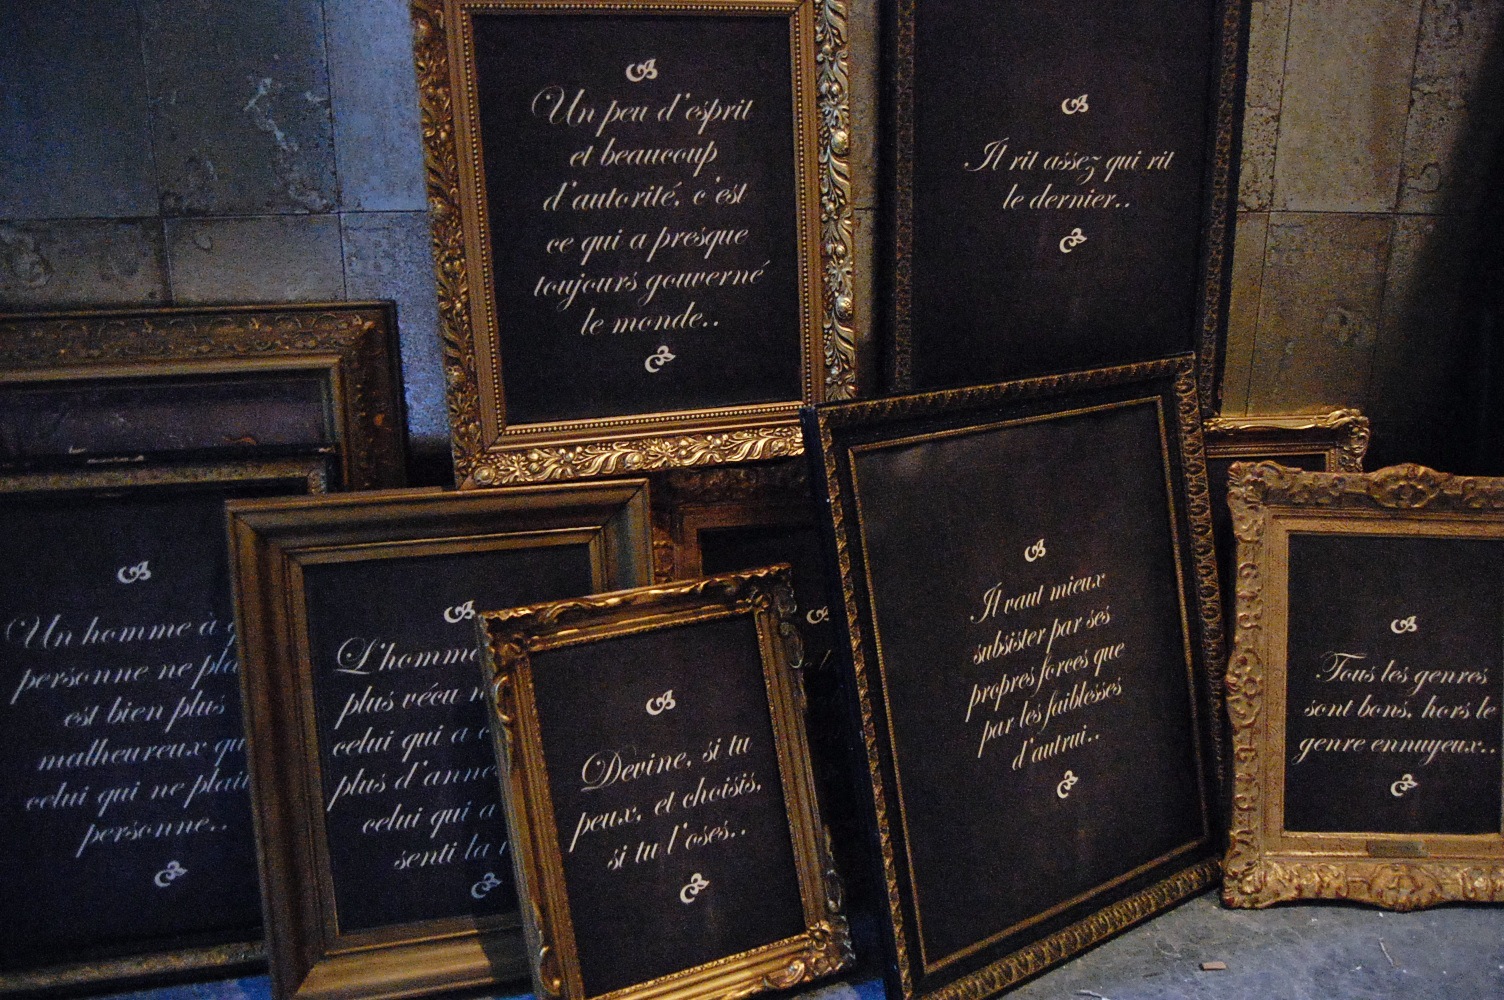 Un peu d'esprit
et beaucoup
d'autorité, c'est
ce qui a presque
toujours gouverné
le monde..
Il rit assez qui rit
le dernier..
Un homme à
personne ne
est bien plus
malheureux
celui qui ne plaît
personne..
L'homme
plus vécu
celui qui a
plus
celui qui a
senti la
Devine, si tu
peux, et choisis,
si tu l'oses..
Il vaut mieux
subsister par ses
propres forces que
par les faiblesses
d'autrui..
Tous les genres
sont bons, hors le
genre ennuyeux..